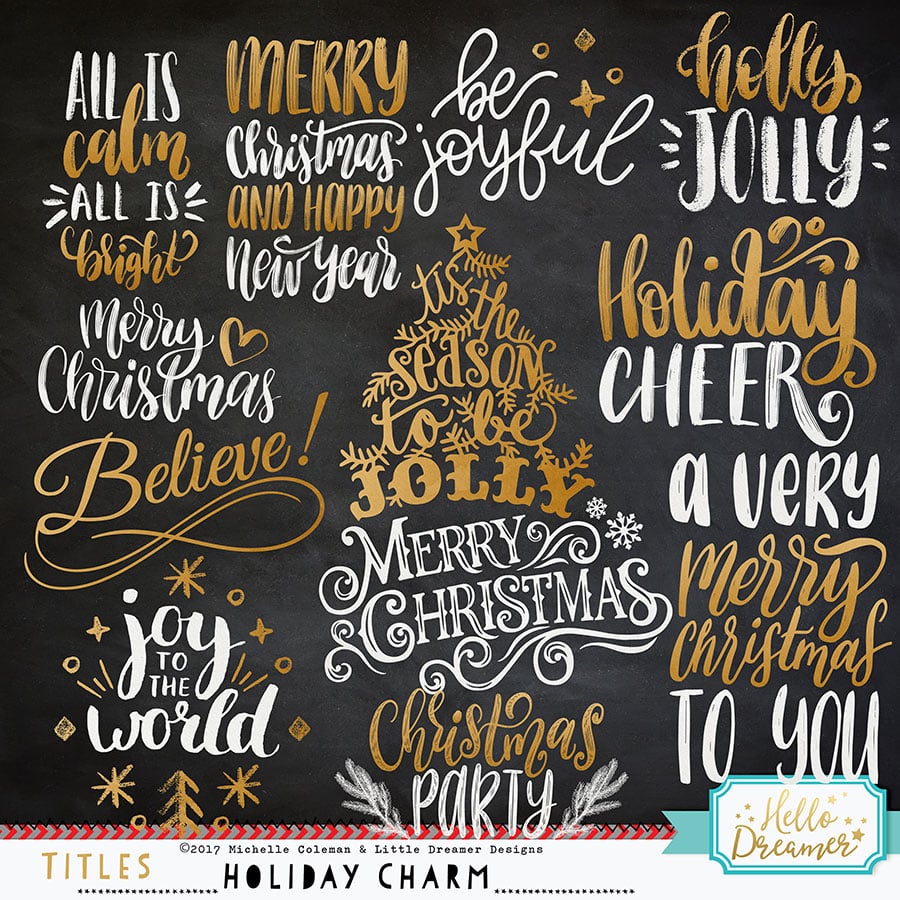 ALL IS
calm
ALL IS
bright
MERRY
Christmas
AND HAPPY
New Year
be
joyful
holly
JOLLY
Merry
Christmas
'tis
the
season
to be
JOLLY
Holiday
CHEER
Believe!
MERRY
CHRISTMAS
a very
merry
christmas
TO YOU
joy
TO
THE
world
Christmas
PARTY
Hello
Dreamer
©2017 Michelle Coleman & Little Dreamer Designs
TITLES
HOLIDAY CHARM